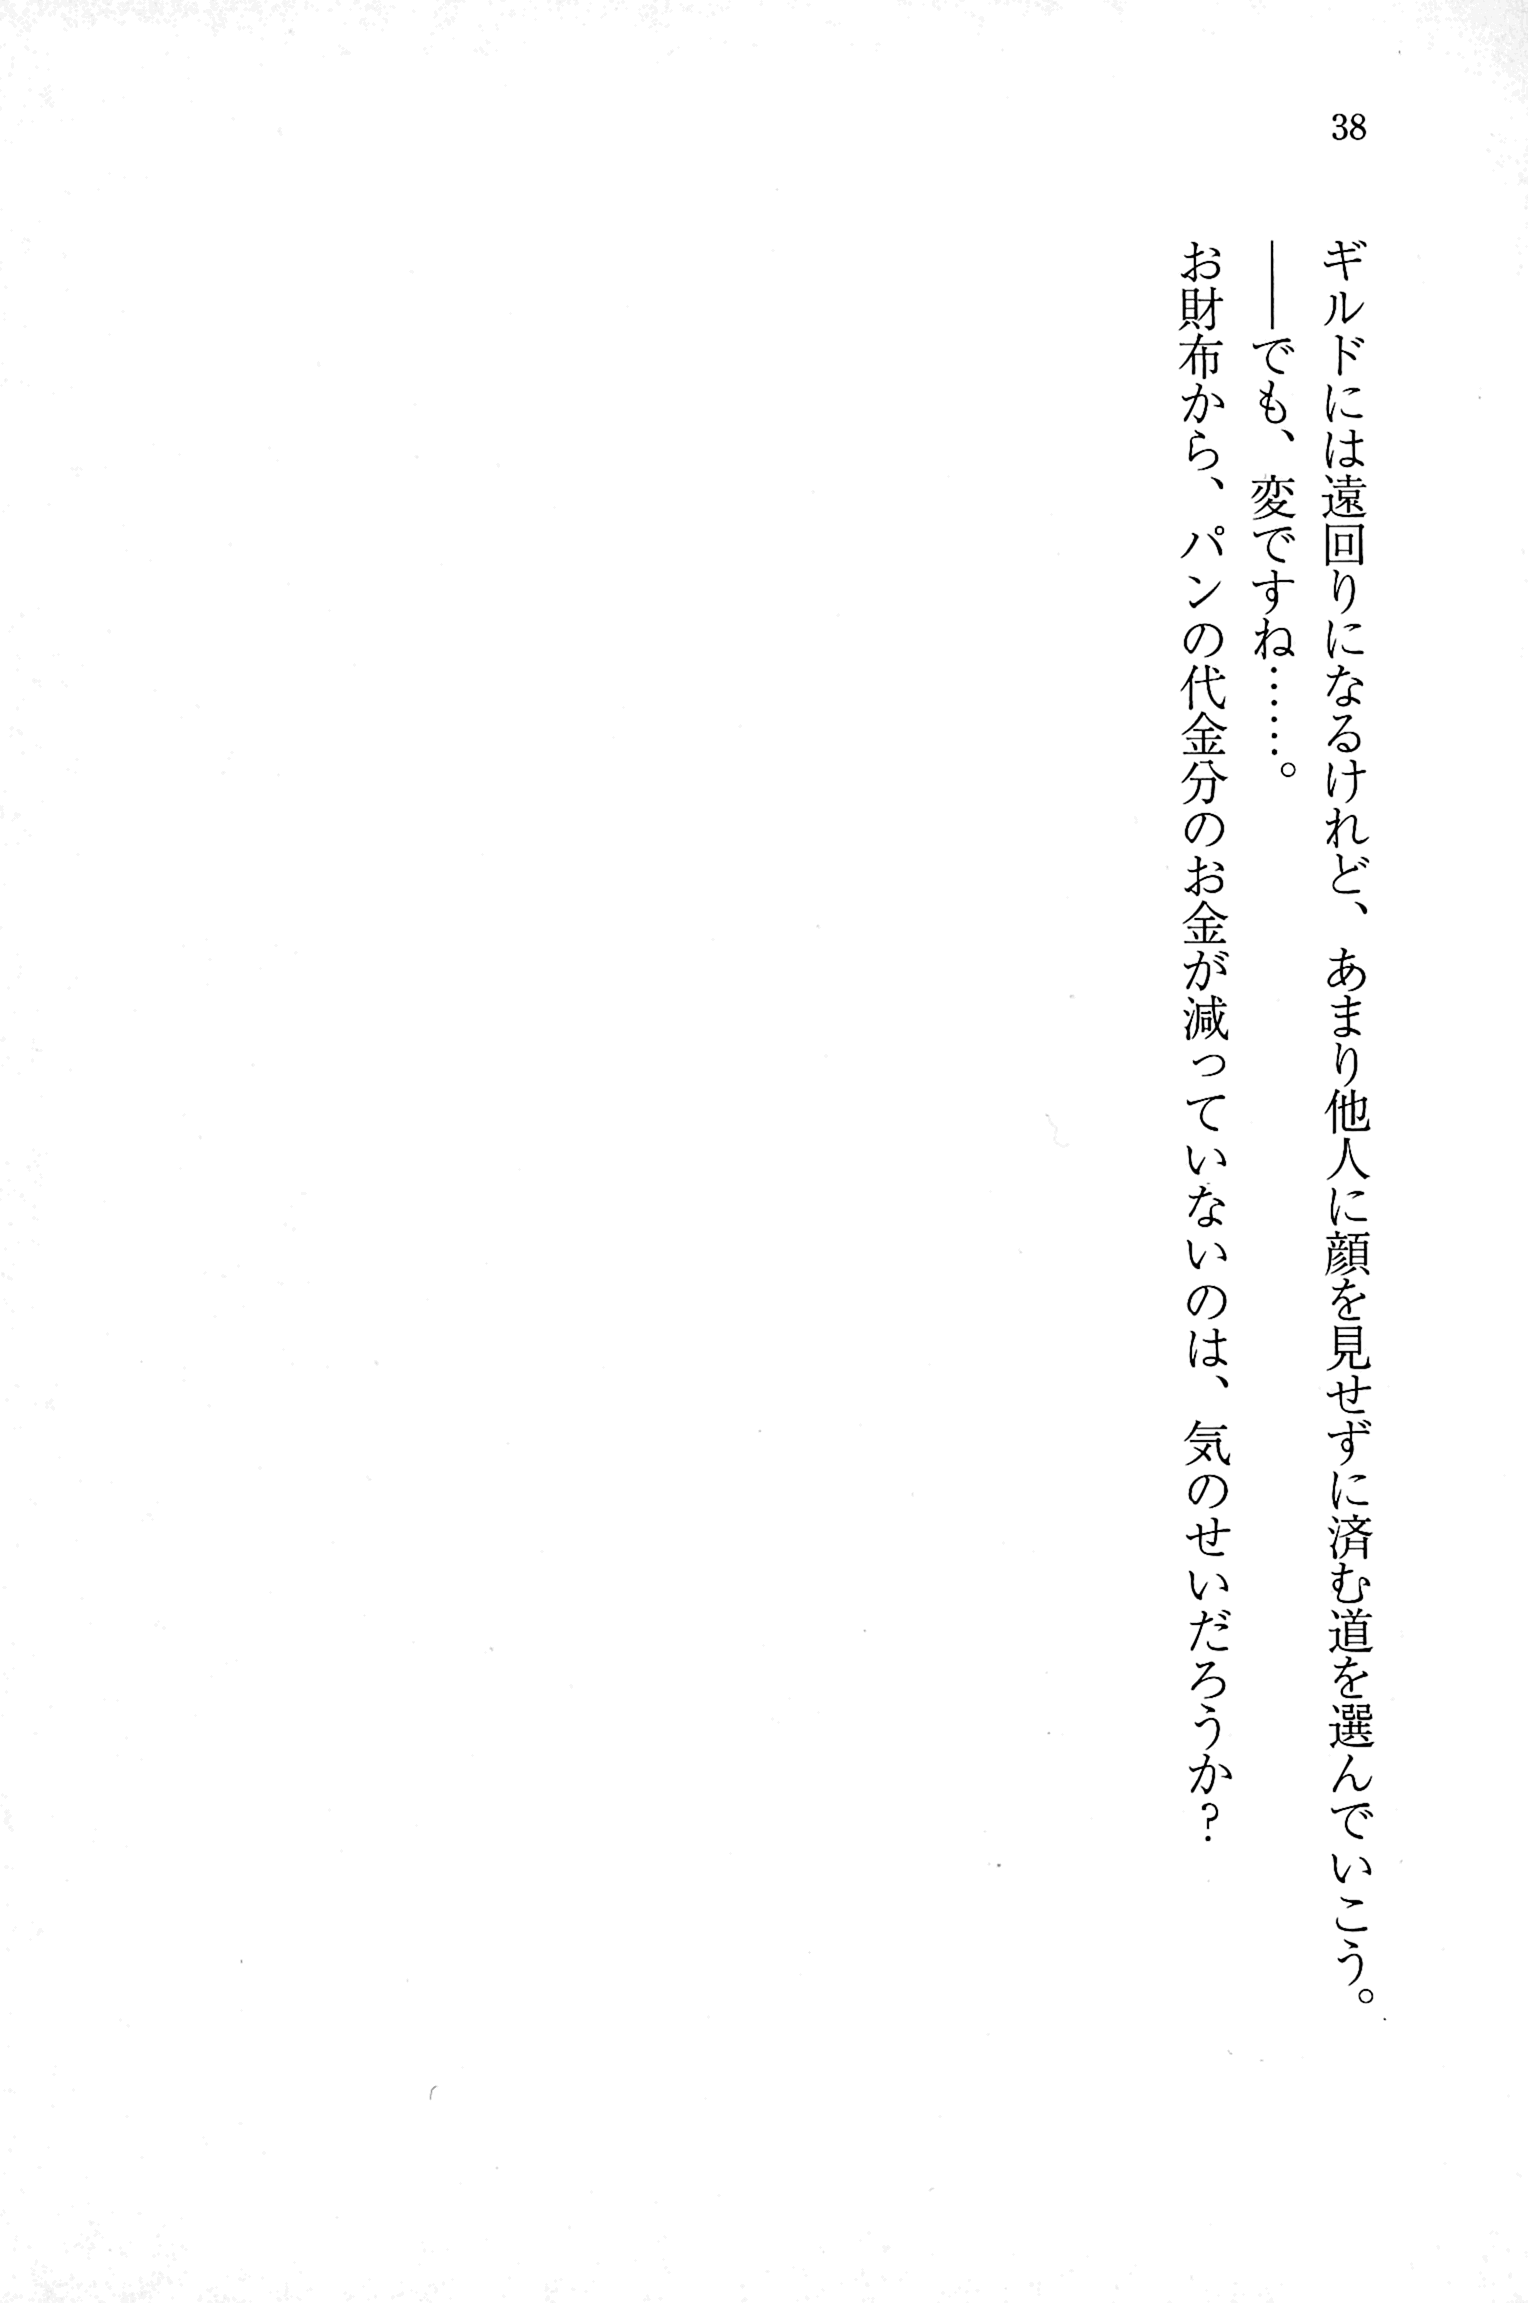 38
ギルドには遠回りになるけれど、あまり他人に顔を見せずに済む道を選んでいこう。
――でも、変ですね……。
お財布から、パンの代金分のお金が減っていないのは、気のせいだろうか？